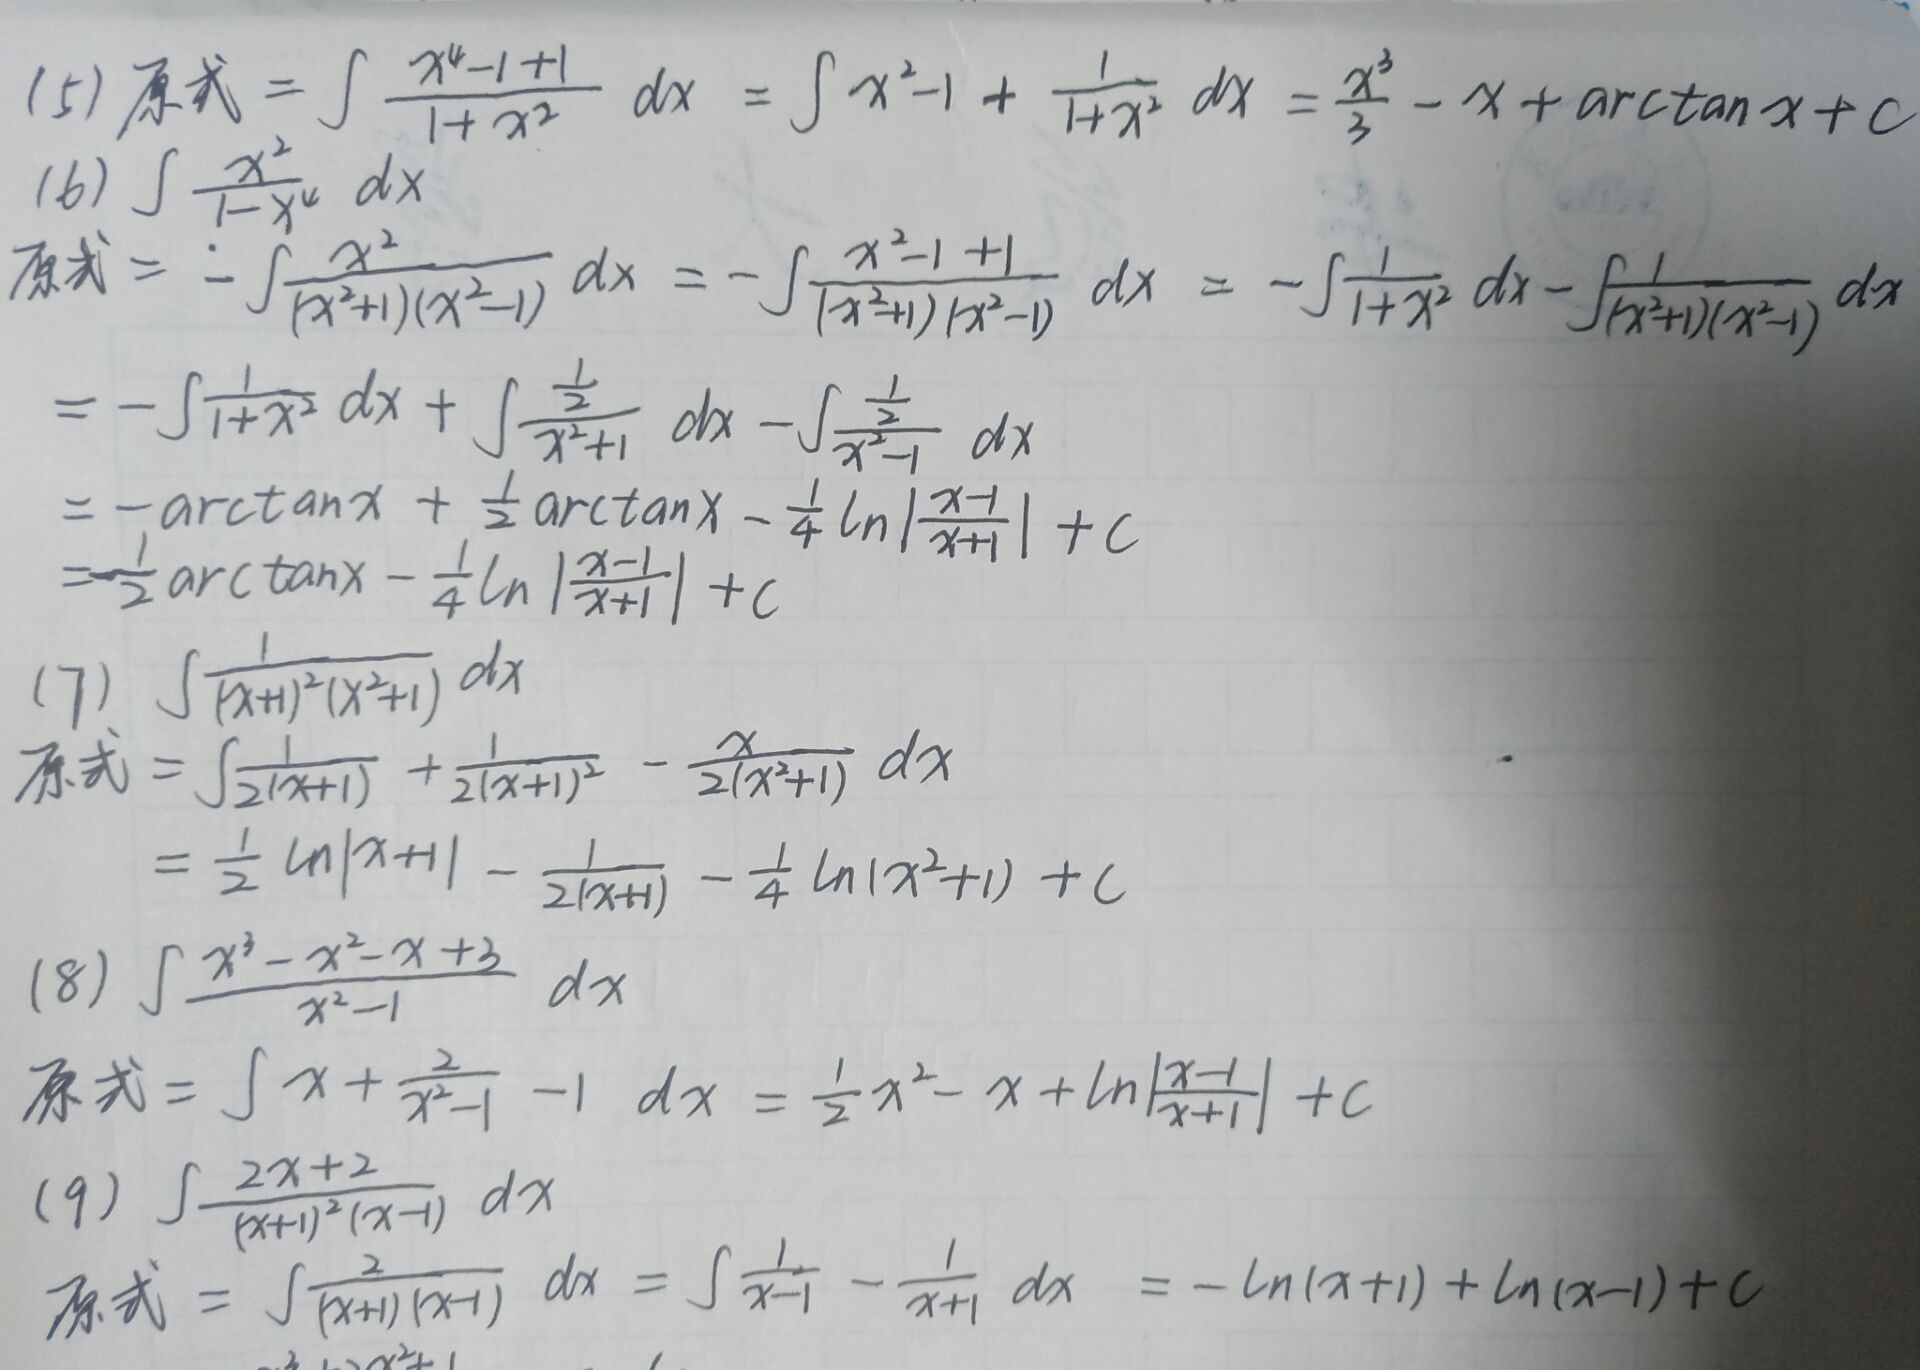 (5) 原式 = ∫ (x⁴-1+1)/(1+x²) dx = ∫ x²-1 + 1/(1+x²) dx = x³/3 - x + arctanx + C
(6) ∫ x²/(1-x⁴) dx
原式 = -∫ x²/((x²+1)(x²-1)) dx = -∫ (x²-1+1)/((x²+1)(x²-1)) dx = -∫ 1/(1+x²) dx - ∫ 1/((x²+1)(x²-1)) dx
= -∫ 1/(1+x²) dx + ∫ (1/2)/(x²+1) dx - ∫ (1/2)/(x²-1) dx
= -arctanx + 1/2 arctanx - 1/4 ln|(x-1)/(x+1)| + C
= -1/2 arctanx - 1/4 ln|(x-1)/(x+1)| + C
(7) ∫ 1/((x+1)²(x²+1)) dx
原式 = ∫ 1/(2(x+1)) + 1/(2(x+1)²) - x/(2(x²+1)) dx
= 1/2 ln|x+1| - 1/(2(x+1)) - 1/4 ln(x²+1) + C
(8) ∫ (x³-x²-x+3)/(x²-1) dx
原式 = ∫ x + 2/(x²-1) - 1 dx = 1/2 x² - x + ln|(x-1)/(x+1)| + C
(9) ∫ (2x+2)/((x+1)²(x-1)) dx
原式 = ∫ 2/((x+1)(x-1)) dx = ∫ 1/(x-1) - 1/(x+1) dx = -ln(x+1) + ln(x-1) + C